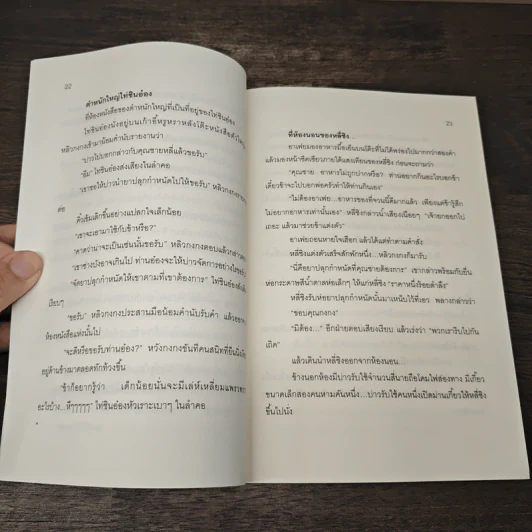 22
ตำหนักใหญ่ไท่ชินอ๋อง
ที่ห้องหนังสือของตำหนักใหญ่ที่เป็นที่อยู่ของไท่ชินอ๋อง
ไท่ชินอ๋องนั่งอยู่บนเก้าอี้หรูหราหลังโต๊ะหนังสือตัวใหญ่
หลิวกงกงเข้ามาน้อมคำนับรายงานว่า
"บ่าวไปบอกกล่าวกับคุณชายหลี่แล้วขอรับ"
"อืม" ไท่ชินอ๋องส่งเสียงในลำคอ
"เขาขอให้บ่าวนำยาปลุกกำหนัดไปให้ขอรับ" หลิวกงกงรายงาน
ต่อ
คิ้วเข้มเลิกขึ้นอย่างแปลกใจเล็กน้อย
"เขาจะเอามาใช้กับข้าหรือ?"
"คาดว่าน่าจะเป็นเช่นนั้นขอรับ" หลิวกงกงตอบแล้วกล่าว
"เขาช่างบังอาจเกินไป ท่านอ๋องจะให้บ่าวจัดการอย่างไรขอรับ"
"จัดยาปลุกกำหนัดให้เขาตามที่เขาต้องการ" ไท่ชินอ๋องสั่ง
เรียบๆ
"ขอรับ" หลิวกงกงประสานมือน้อมคำนับรับคำ แล้วออกจาก
ห้องหนังสือแห่งนั้นไป
"จะดีหรือขอรับท่านอ๋อง?" หวังกงกงขันทีคนสนิทที่ยืนนิ่ง
อยู่ด้านข้างมาตลอดทักท้วงขึ้น
"ข้าก็อยากรู้ว่า ...เด็กน้อยนั่นจะมีเล่ห์เหลี่ยมแพรวพราว
อะไรบ้าง...หึๆๆๆๆๆ" ไท่ชินอ๋องหัวเราะเบาๆ ในลำคอ
23
ที่ห้องนอนของหลี่ซิง...
อาเฟยมองอาหารมื้อเย็นบนโต๊ะที่ไม่ได้พร่องไปมากกว่าสองคำ
แล้วมองหน้าซีดเซียวภายใต้แสงเทียนของหลี่ซิง ก่อนจะถามว่า
"คุณชาย อาหารไม่ถูกปากหรือ? ท่านอยากกินอะไรบอกข้า
เดี๋ยวข้าจะไปบอกพ่อครัวทำให้ท่านกินเอง"
"ไม่ต้องอาเฟย...อาหารของที่จวนนี้ดีมากแล้ว เพียงแต่ข้ารู้สึก
ไม่อยากอาหารเท่านั้นเอง" หลี่ซิงกล่าวน้ำเสียงเนือยๆ "เจ้ายกออกไป
เถอะ แล้วมาช่วยข้าแต่งตัว"
อาเฟยถอนหายใจเฮือก แล้วได้แต่ทำตามคำสั่ง
หลี่ซิงแต่งตัวเสร็จสักพักหนึ่ง...หลิวกงกงก็มารับ
"นี่คือยาปลุกกำหนัดที่คุณชายต้องการ" เขากล่าวพร้อมกับยื่น
ห่อกระดาษสีน้ำตาลห่อเล็กๆ ให้แก่หลี่ซิง "ราคาหนึ่งร้อยตำลึง"
หลี่ซิงรับห่อยาปลุกกำหนัดนั้นมาเหน็บไว้ที่เอว พลางกล่าวว่า
"ขอบคุณกงกง"
"มิต้อง..." อีกฝ่ายตอบเสียงเรียบ แล้วเร่งว่า "พวกเรารีบไปกัน
เถิด"
แล้วเดินนำหลี่ซิงออกจากห้องนอน
ข้างนอกห้องมีบ่าวรับใช้จำนวนสี่นายถือโคมไฟส่องทาง มีเกี้ยว
ขนาดเล็กสองคนหามคันหนึ่ง...บ่าวรับใช้คนหนึ่งเปิดม่านเกี้ยวให้หลี่ซิง
ขึ้นไปนั่ง